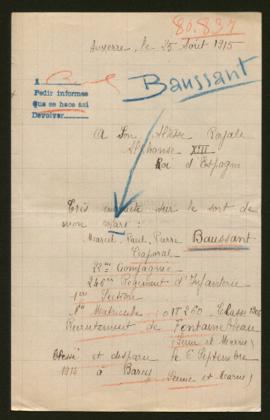 80.837
Auxerre, le 25 Août 1915
A
Pedir informes
Que se hace así
Devolver
Baussant
A Son Altesse Royale
Alphonse XIII
Roi d'Espagne
Très inquiète sur le sort de
mon mari
Marcel, Paul, Pierre Baussant
Caporal
22me Compagnie
246me Régiment d'Infanterie
1ère Section
No Matricule : 01T 260, Classe
Recrutement de Fontainebleau
(Seine et Marne)
Blessé et disparu le 6 Septembre
1914 à Barcy
(Seine et Marne)